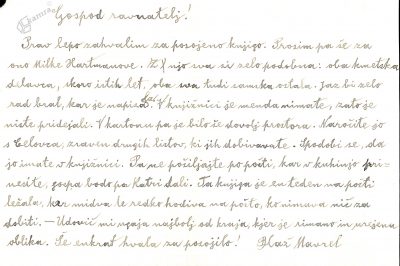 Gospod ravnatelj!
Prav lepo zahvalim za posojeno knjigo. Prosim pa še za
ono Milke Hartmanove. Z njo sva si zelo podobna: oba kmetska
delavca, skoro istih let, oba sva tudi samka ostala. Jaz bi zelo
rad bral, kar je napisala. V knjižnici je menda nimate, zato je
niste pridejali. V kartonu pa je bilo še dovolj prostora. Naročite jo
s Celovca, zraven drugih listov, ki jih dobivavate. Spodobi se, da
jo imate v knjižnici. Pa ne pošiljajte po pošti, kar v kuhinjo pri-
nesite, gospa bodo pa Katri dali. Ta knjiga je en teden na pošti
ležala, ker midva le redko hodiva na pošto, ko nimava nič za
dobiti. — Udovič mi ugaja najbolj od kraja, kjer je rimano in urejena
oblika. Še enkrat hvala za posojilo! Blaž Mavrel